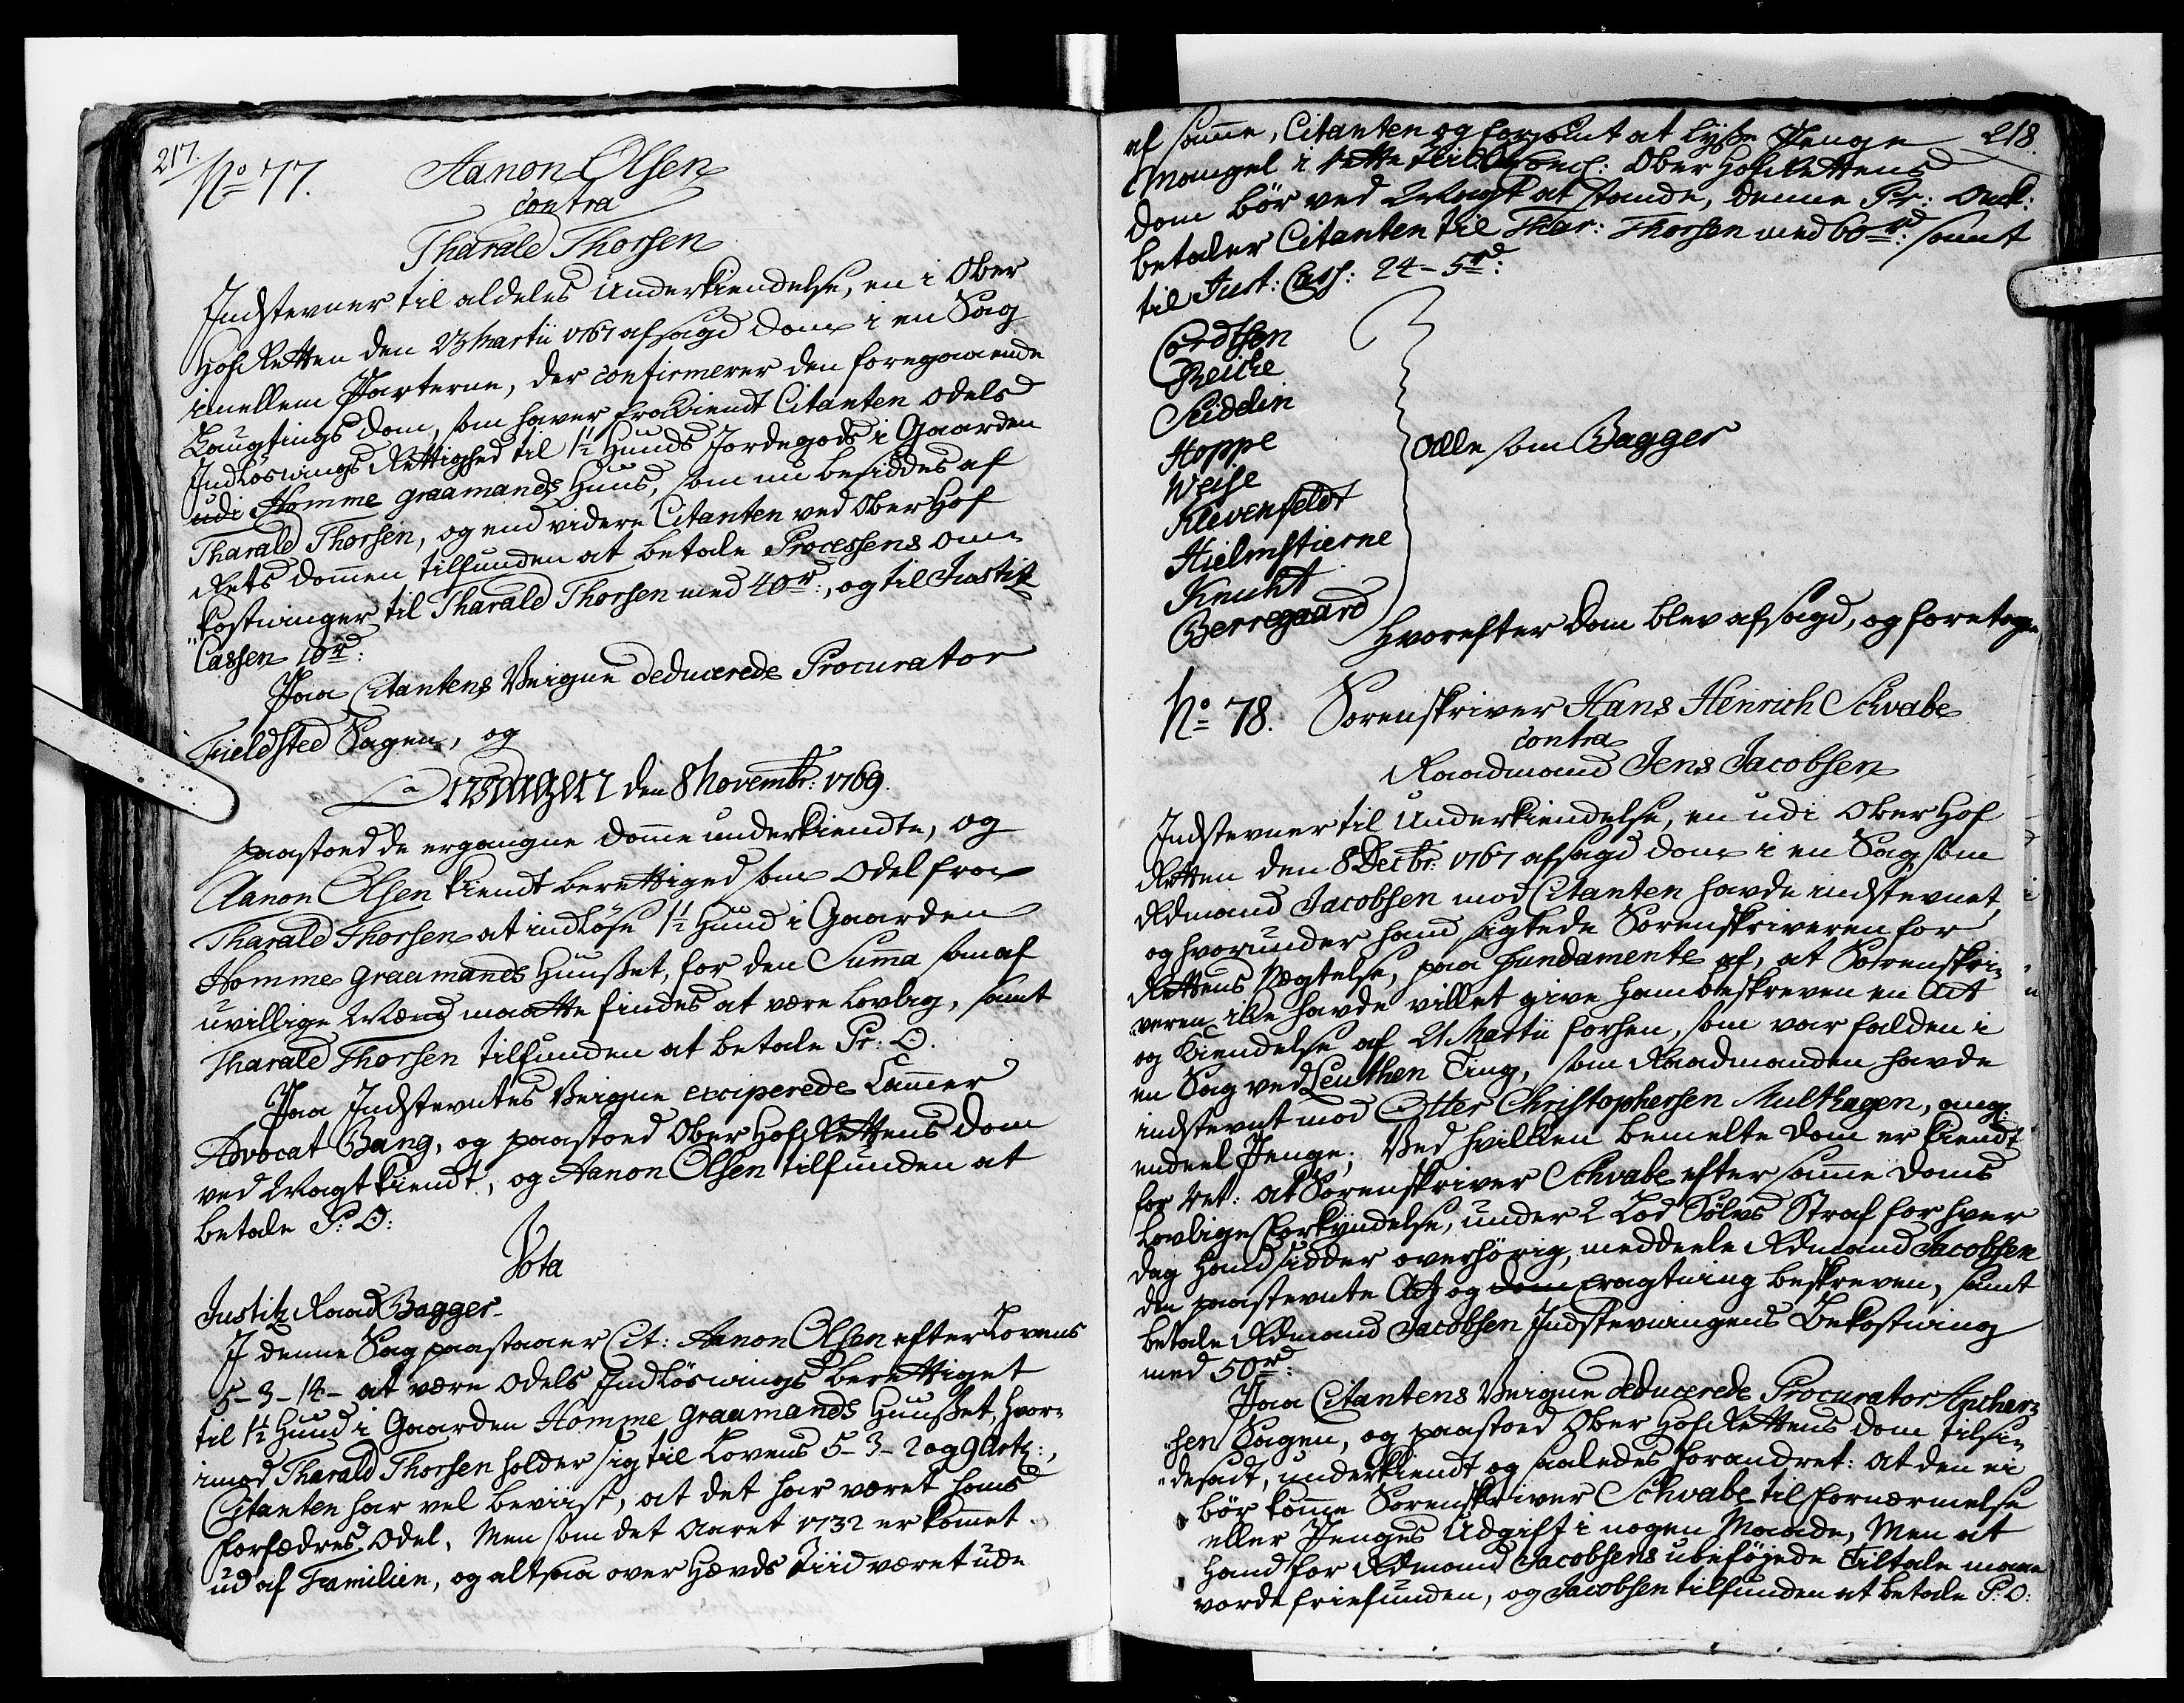 217.
No 77.
Aanon Olsen
contra
Tharald Thorsen
Indstevner til aldeles Underkiendelse, en i Ober
HofRetten den 23 Martii 1767 afsagd Dom i en Sag
imellem Parterne, der confirmerer den foregaaende
Laugtings Dom, som haver frakiendt Citanten Odels
Indløsnings Rettighed til 1½ Huuds Jordegods i Gaarden
udi Homme graamands Huus, som nu besiddes af
Tharald Thorsen, og end videre Citanten ved Ober Hof
Rets Dommen tilfunden at betale Processens Om-
kostninger til Tharald Thorsen med 40 rd:, og til Justitz
Cassen 10 rd:
Paa Citantens Veigne deducerede Procurator
Fieldsted Sagen, og
Onsdagen den 8 Novembr: 1769.
paastoed de ergangne Domme underkiendte, og
Aanon Olsen kiendt berettiged som Odel fra
Tharald Thorsen at indløse 1½ Huud i Gaarden
Homme graamands Huuset, for den Summa som af
uvillige Mænd maatte findes at være lovlig, samt
Tharald Thorsen tilfunden at betale Pr: O.
Paa Indstevntes Veigne exciperede Cammer
Advocat Bang, og paastoed Ober HofRettens Dom
ved Magt kiendt, og Aanon Olsen tilfunden at
betale P: O:
Vota
Justitz Raad Bagger
I denne Sag paastaaer Cit: Aanon Olsen efter Lovens
5-3-14- at være Odels Indløsnings berettiget
til 1½ Huud i Gaarden Homme graamands Huuset, hvor-
imod Tharald Thorsen holder sig til Lovens 5-3-2 og 9 Art:,
Citanten har vel beviist, at det har været hans
Forfædres Odel, Men som det Aaret 1732 er kommet
ud af Familien, og altsaa over Hævds Tiid været ude
218.
af samme, Citanten og forsømt at lyse Penge
Mangel i rette Tid Concl: Ober HofRettens
Dom bør ved Magt at stande, denne Pr: Omk:
betaler Citanten til Thar: Thorsen med 60 rd: samt
til Just: Cass: 24 - 5 rd:
Cordtsen
Reiche
Seidelin
Hoppe
Weise
Klevenfeldt
Hielmstierne
Knuht
Berregaard
Alle som Bagger
Hvorefter Dom blev afsagd, og foretagen
No 78. Sorenskriver Hans Henrich Schvabe
contra
Raadmand Jens Jacobsen
Indstevner til Underkiendelse, en udi Ober Hof
Retten den 8 Decbr: 1767 afsagd Dom i en Sag som
Rdmand Jacobsen mod Citanten havde indstevnet,
og hvorunder hand sigtede Sorenskriveren for
Rettens Nægtelse, paa Fundamente af, at Sorenskri-
veren ikke havde villet give ham beskreven en Act
og Kiendelse af 21 Martii forhen, som var falden i
en Sag ved Leuthen Ting, som Raadmanden havde
indstevnt mod Otter Christophersen Multhagen, ang:
endeel Penge; Ved hvilken bemelte Dom er kiendt
for Ret: At Sorenskriver Schvabe efter samme Doms
lovlige Forkyndelse, under 2 Lod Sølvs Straf for hver
Dag hand sidder overhørig, meddeele Rdmand Jacobsen
den paastevnte Act og Eragtning beskreven, samt
betale Rdmand Jacobsen Indstevningens Bekostning
med 50 rd:
Paa Citantens Veigne deducerede Procurator Ancher-
sen Sagen, og paastoed Ober HofRettens Dom tilsi-
desadt, underkiendt og saaledes forandret: At den ei
bør komme Sorenskriver Schvabe til Fornærmelse
eller Penges Udgift i nogen Maade, Men at
hand for Rdmand Jacobsens ubeføjede Tiltale maae
vorde friefunden, og Jacobsen tilfunden at betale P: O: